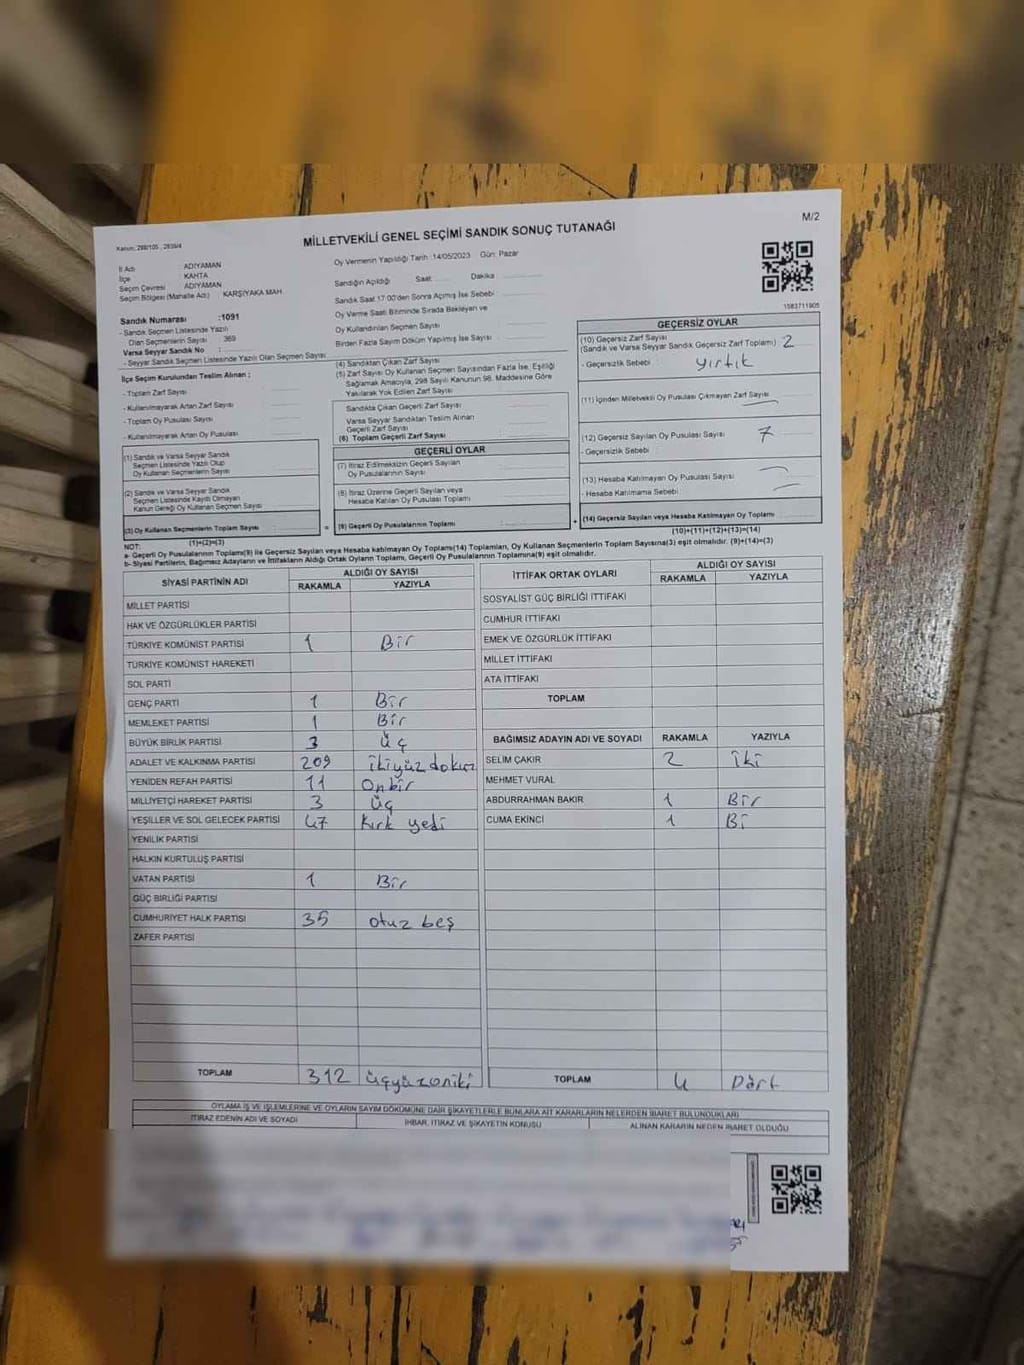 M/2
Kanun: 298/105 , 2839/4
MİLLETVEKİLİ GENEL SEÇİMİ SANDIK SONUÇ TUTANAĞI
İl Adı : ADIYAMAN
İlçe : KAHTA
Seçim Çevresi : ADIYAMAN
Seçim Bölgesi (Mahalle Adı) : KARŞIYAKA MAH.
Sandık Numarası :1091
- Sandık Seçmen Listesinde Yazılı
Olan Seçmenlerin Sayısı : 369
Varsa Seyyar Sandık No :
- Seyyar Sandık Seçmen Listesinde Yazılı Olan Seçmen Sayısı
Oy Vermenin Yapıldığı Tarih :14/05/2023 Gün: Pazar
Sandığın Açıldığı Saat: Dakika
Sandık Saat 17:00'den Sonra Açılmış İse Sebebi
Oy Verme Saati Bitiminde Sırada Bekleyen ve
Oy Kullandırılan Seçmen Sayısı
Birden Fazla Sayım Döküm Yapılmış İse Sayısı :
1583711905
İlçe Seçim Kurulundan Teslim Alınan ;
- Toplam Zarf Sayısı
- Kullanılmayarak Artan Zarf Sayısı
- Toplam Oy Pusulası Sayısı
- Kullanılmayarak Artan Oy Pusulası
(1) Sandık ve Varsa Seyyar Sandık
Seçmen Listesinde Yazılı Olup
Oy Kullanan Seçmenlerin Sayısı
(2) Sandık ve Varsa Seyyar Sandık
Seçmen Listesinde Kayıtlı Olmayan
Kanun Gereği Oy Kullanan Seçmen Sayısı
(3) Oy Kullanan Seçmenlerin Toplam Sayısı
(1)+(2)=(3)
(4) Sandıktan Çıkan Zarf Sayısı
(5) Zarf Sayısı Oy Kullanan Seçmen Sayısından Fazla İse, Eşitliği
Sağlamak Amacıyla, 298 Sayılı Kanunun 98. Maddesine Göre
Yakılarak Yok Edilen Zarf Sayısı
Sandıkta Çıkan Geçerli Zarf Sayısı
Varsa Seyyar Sandıktan Teslim Alınan
Geçerli Zarf Sayısı
(6) Toplam Geçerli Zarf Sayısı
GEÇERLİ OYLAR
(7) İtiraz Edilmeksizin Geçerli Sayılan
Oy Pusulalarının Sayısı
(8) İtiraz Üzerine Geçerli Sayılan veya
Hesaba Katılan Oy Pusulası Toplamı
= (9) Geçerli Oy Pusulalarının Toplamı +
GEÇERSİZ OYLAR
(10) Geçersiz Zarf Sayısı
(Sandık ve Varsa Seyyar Sandık Geçersiz Zarf Toplamı) 2
- Geçersizlik Sebebi : yırtık
(11) İçinden Milletvekili Oy Pusulası Çıkmayan Zarf Sayısı
(12) Geçersiz Sayılan Oy Pusulası Sayısı 7
- Geçersizlik Sebebi
(13) Hesaba Katılmayan Oy Pusulası Sayısı
- Hesaba Katılmama Sebebi
(14) Geçersiz Sayılan veya Hesaba Katılmayan Oy Toplamı
(10)+(11)+(12)+(13)=(14)
NOT:
a- Geçerli Oy Pusulalarının Toplamı(9) ile Geçersiz Sayılan veya Hesaba katılmayan Oy Toplamı(14) Toplamları, Oy Kullanan Seçmenlerin Toplam Sayısına(3) eşit olmalıdır. (9)+(14)=(3)
b- Siyasi Partilerin, Bağımsız Adayların ve İttifakların Aldığı Ortak Oyların Toplamı, Geçerli Oy Pusulalarının Toplamına(9) eşit olmalıdır.
SİYASİ PARTİNİN ADI ALDIĞI OY SAYISI
RAKAMLA YAZIYLA
MİLLET PARTİSİ
HAK VE ÖZGÜRLÜKLER PARTİSİ
TÜRKİYE KOMÜNİST PARTİSİ 1 Bir
TÜRKİYE KOMÜNİST HAREKETİ
SOL PARTİ
GENÇ PARTİ 1 Bir
MEMLEKET PARTİSİ 1 Bir
BÜYÜK BİRLİK PARTİSİ 3 üç
ADALET VE KALKINMA PARTİSİ 209 ikiyüz dokuz
YENİDEN REFAH PARTİSİ 11 Onbir
MİLLİYETÇİ HAREKET PARTİSİ 3 üç
YEŞİLLER VE SOL GELECEK PARTİSİ 47 Kırk yedi
YENİLİK PARTİSİ
HALKIN KURTULUŞ PARTİSİ
VATAN PARTİSİ 1 Bir
GÜÇ BİRLİĞİ PARTİSİ
CUMHURİYET HALK PARTİSİ 35 otuz beş
ZAFER PARTİSİ
TOPLAM 312 üçyüzoniki
İTTİFAK ORTAK OYLARI ALDIĞI OY SAYISI
RAKAMLA YAZIYLA
SOSYALİST GÜÇ BİRLİĞİ İTTİFAKI
CUMHUR İTTİFAKI
EMEK VE ÖZGÜRLÜK İTTİFAKI
MİLLET İTTİFAKI
ATA İTTİFAKI
TOPLAM
BAĞIMSIZ ADAYIN ADI VE SOYADI RAKAMLA YAZIYLA
SELİM ÇAKIR 2 iki
MEHMET VURAL
ABDURRAHMAN BAKIR 1 Bir
CUMA EKİNCİ 1 Bi
TOPLAM 4 Dört
OYLAMA İŞ VE İŞLEMLERİNE VE OYLARIN SAYIM DÖKÜMÜNE DAİR ŞİKAYETLERLE BUNLARA AİT KARARLARIN NELERDEN İBARET BULUNDUKLARI
İTİRAZ EDENİN ADI VE SOYADI İHBAR, İTİRAZ VE ŞİKAYETİN KONUSU ALINAN KARARIN NEDEN İBARET OLDUĞU